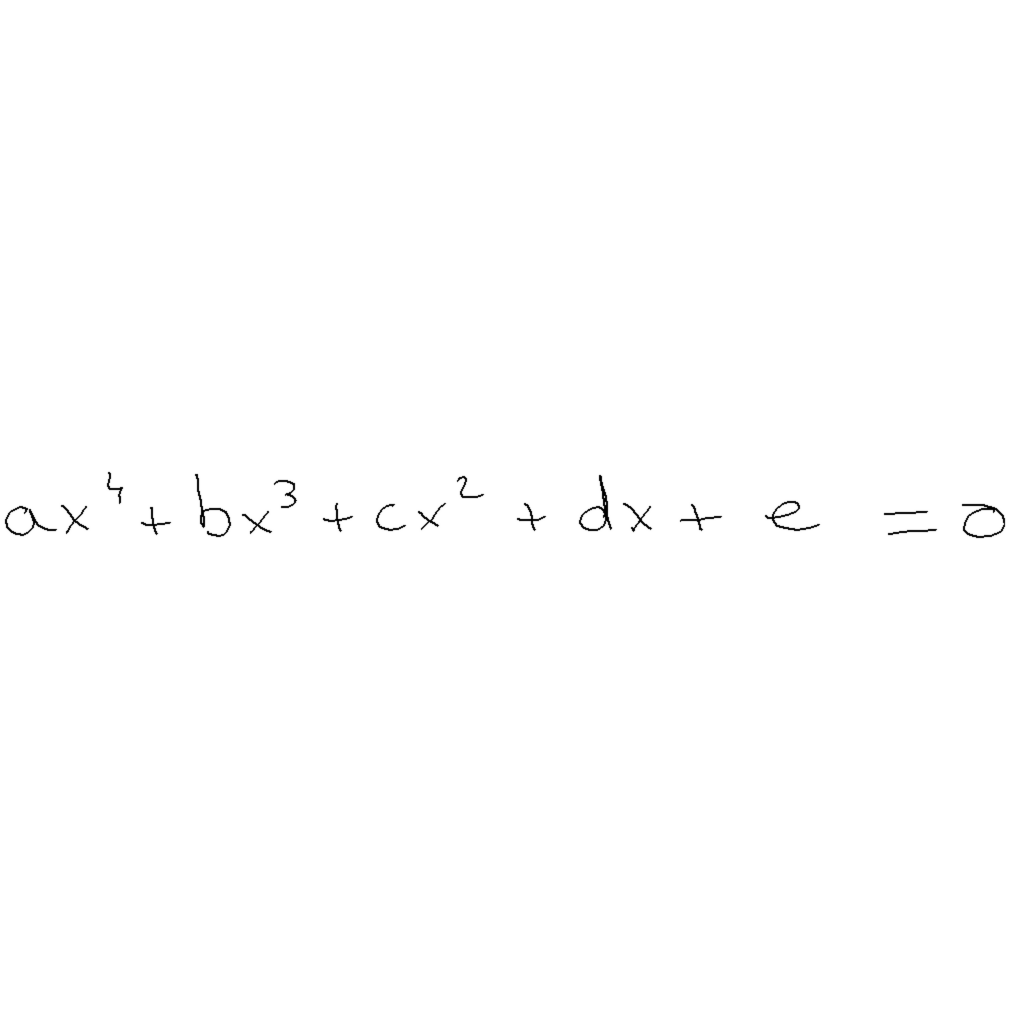 ax⁴ + bx³ + cx² + dx + e = 0